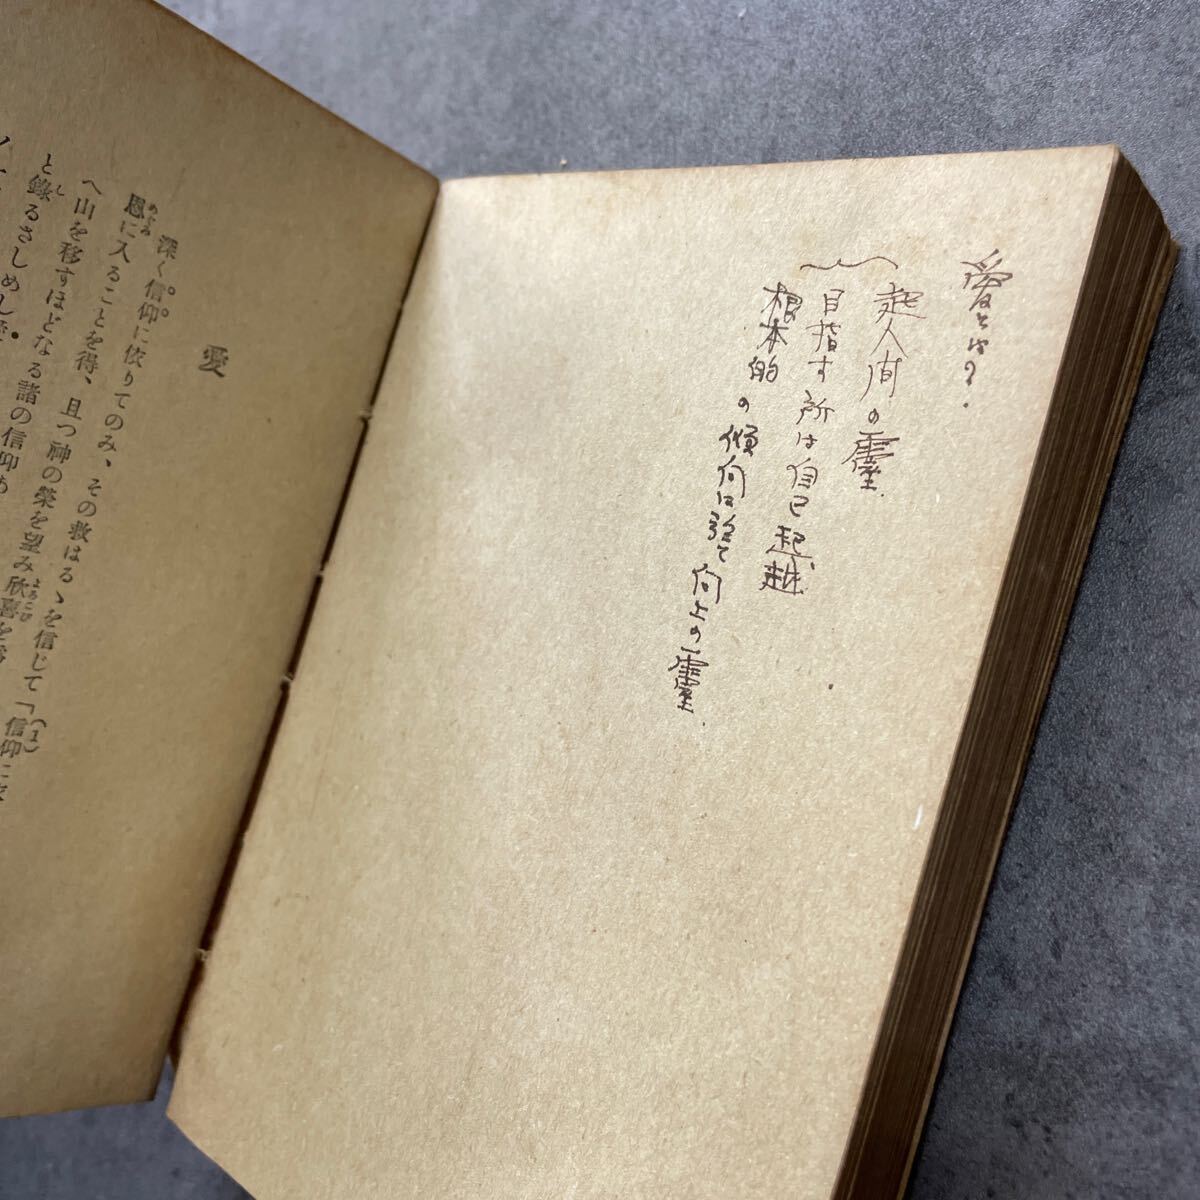 愛とは?
超人間の靈
目指す所は自己超越
根本的の傾向は強て向上の靈
愛
深く信仰に依りてのみ、その救はるゝを信じて「信仰に
恩に入ることを得、且つ神の榮を望み欣喜を
へ山を移すほどなる諸の信仰あ
と錄るさしめし